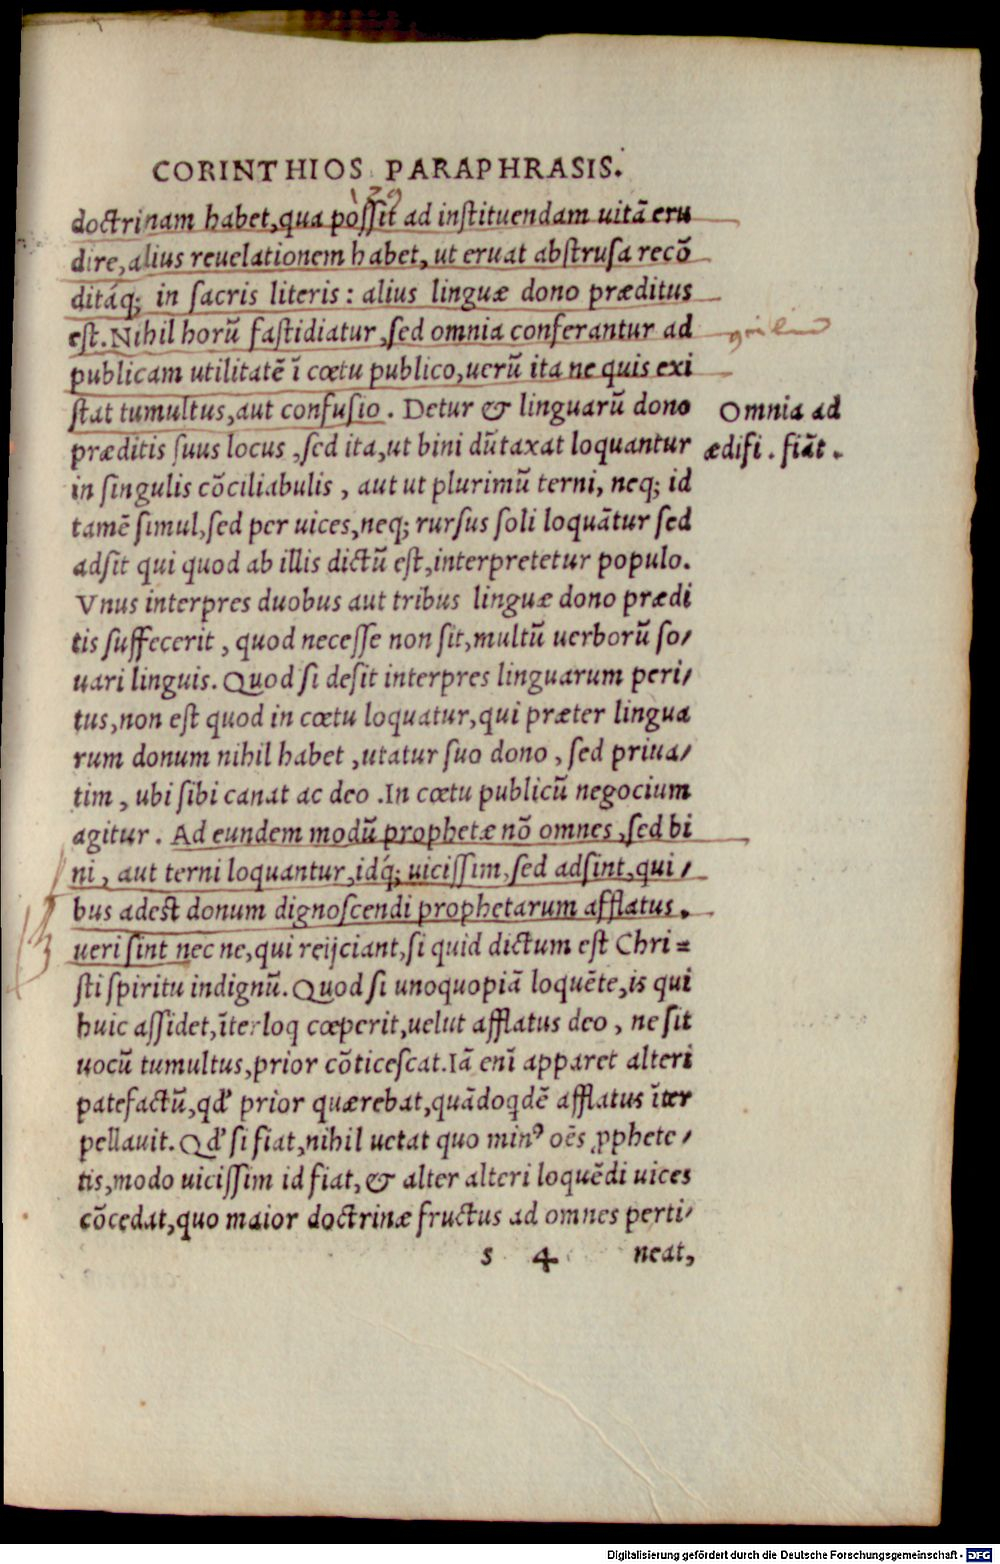 CORINTHIOS PARAPHRASIS.
129
doctrinam habet, qua possit ad instituendam uitā eru
dire, alius reuelationem habet, ut eruat abstrusa recō
ditáq; in sacris literis: alius linguæ dono præditus
est. Nihil horū fastidiatur, sed omnia conferantur ad
publicam utilitatē ī cœtu publico, uerū ita ne quis exi
stat tumultus, aut confusio. Detur & linguarū dono
Omnia ad
præditis suus locus, sed ita, ut bini dūtaxat loquantur
ædifi. fiāt.
in singulis cōciliabulis, aut ut plurimū terni, neq; id
tamē simul, sed per uices, neq; rursus soli loquātur sed
adsit qui quod ab illis dictū est, interpretetur populo.
Vnus interpres duobus aut tribus linguæ dono prædi
tis suffecerit, quod necesse non sit, multū uerborū so/
uari linguis. Quod si desit interpres linguarum peri/
tus, non est quod in cœtu loquatur, qui præter lingua
rum donum nihil habet, utatur suo dono, sed priua/
tim, ubi sibi canat ac deo. In cœtu publicū negocium
agitur. Ad eundem modū prophetæ nō omnes, sed bi
ni, aut terni loquantur, idq́; uicissim, sed adsint, qui/
bus adest donum dignoscendi prophetarum afflatus,
ueri sint nec ne, qui reijciant, si quid dictum est Chri=
sti spiritu indignū. Quod si unoquopiā loquēte, is qui
huic assidet, īterloq cœperit, uelut afflatus deo, ne sit
uocū tumultus, prior cōticescat. Iā enī apparet alteri
patefactū, qđ prior quærebat, quādoqdē afflatus īter
pellauit. Qđ si fiat, nihil uetat quo minꝰ oēs ꝓphete/
tis, modo uicissim id fiat, & alter alteri loquēdi uices
cōcedat, quo maior doctrinæ fructus ad omnes perti/
s 4 neat,
Digitalisierung gefördert durch die Deutsche Forschungsgemeinschaft - DFG